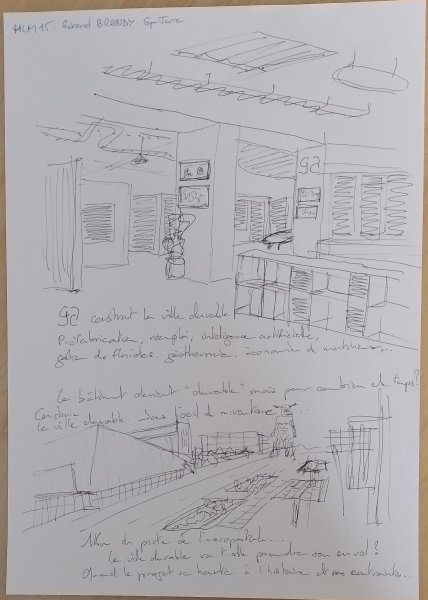 HLM 15. Gérard BRONDY. Gp Terre
G2
G2 construit la ville durable
Préfabrication, réemploi, intelligence artificielle,
gestion des fluides, géothermie, économie de matériaux...
Le bâtiment devient "durable" mais pour combien de temps?
Construire
la ville durable. Sous l'oeil du minotaure...
1 km de piste de l'aéropostale...
la ville durable va t'elle prendre son envol?
Quand le projet se heurte à l'histoire et ses contraintes...